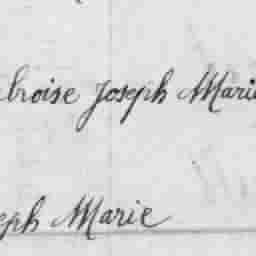 broise Joseph Marie
eph Marie